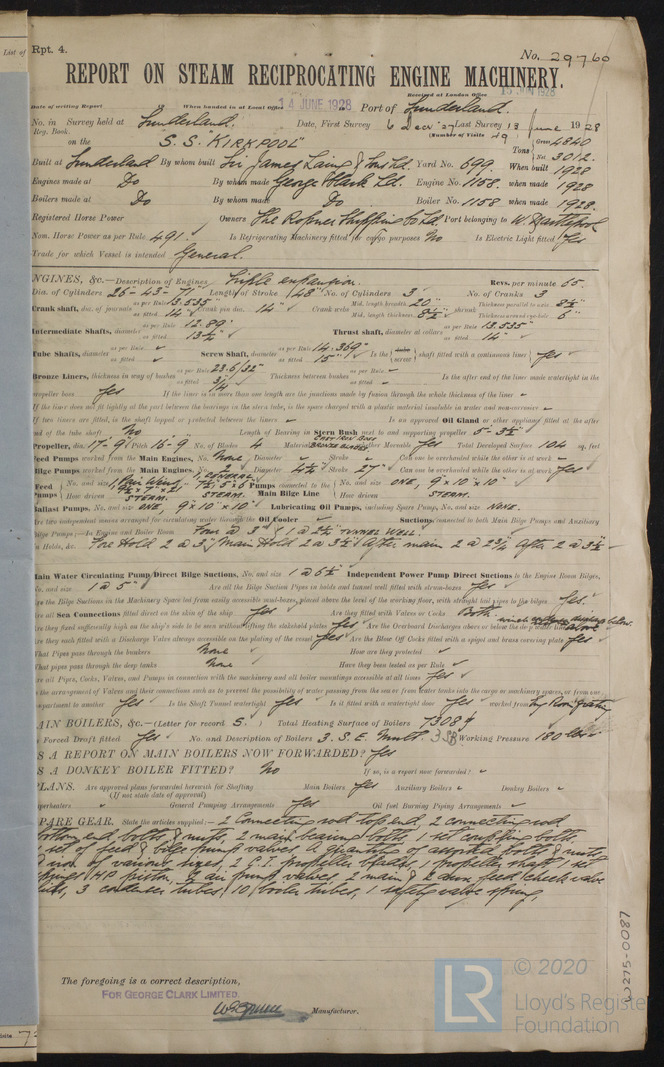 List of
Rpt. 4.
No. 29760
REPORT ON STEAM RECIPROCATING ENGINE MACHINERY.
Received at London Office 15 JUN 1928
Date of writing Report When handed in at Local Office 14 JUNE 1928 Port of Sunderland.
No. in Survey held at Sunderland. Date, First Survey 6 Last Survey 13 June 1928
Reg. Book. (Number of Visits
on the S.S. "KIRKPOOL" Tons Gross 4840
Net 3012.
Built at Sunderland By whom built Sir James Laing & Sons Ld. Yard No. 699 When built 1928
Engines made at Do By whom made George Clark Ld. Engine No. 1158. when made 1928
Boilers made at Do By whom made Do Boiler No. 1158 when made 1928.
Registered Horse Power Owners The Ropner Shipping Co Ld Port belonging to W. Hartlepool
Nom. Horse Power as per Rule 491 Is Refrigerating Machinery fitted for cargo purposes No Is Electric Light fitted Yes
Trade for which Vessel is intended General.
NGINES, &c.—Description of Engines Triple expansion. Revs. per minute 65.
Dia. of Cylinders 26 - 43 - 71" Length of Stroke 48" No. of Cylinders 3 No. of Cranks 3
Crank shaft, dia. of journals as per Rule 13.535" as fitted 14" Crank pin dia. 14" Crank webs Mid. length breadth 20" Mid. length thickness 8½" shrunk Thickness parallel to axis 8½" Thickness around eye-hole 6"
Intermediate Shafts, diameter as per Rule 12.89" as fitted 13¼" Thrust shaft, diameter at collars as per Rule 13.535" as fitted 14"
Tube Shafts, diameter as per Rule as fitted Screw Shaft, diameter as per Rule 14.369" as fitted 15" Is the screw shaft fitted with a continuous liner Yes
Bronze Liners, thickness in way of bushes as per Rule 23.6/32" as fitted 3/4" Thickness between bushes as per Rule as fitted Is the after end of the liner made watertight in the
propeller boss Yes If the liner is in more than one length are the junctions made by fusion through the whole thickness of the liner
If the liner does not fit tightly at the part between the bearings in the stern tube, is the space charged with a plastic material insoluble in water and non-corrosive
If two liners are fitted, is the shaft lapped or protected between the liners Is an approved Oil Gland or other appliance fitted at the after
end of the tube shaft No Length of Bearing in Stern Bush next to and supporting propeller 5 - 3½"
Propeller, dia. 17 - 9" Pitch 16 - 9 No. of Blades 4 Material CAST IRON BOSS BRONZE BLADES whether Moveable Yes Total Developed Surface 104 sq. feet
Feed Pumps worked from the Main Engines, No. None Diameter Stroke Can one be overhauled while the other is at work
Bilge Pumps worked from the Main Engines, No. 2 Diameter 4½" Stroke 27" Can one be overhauled while the other is at work Yes
Feed Pumps No. and size 1 Pair Weirs 1 GENERAL Pumps connected to the Main Bilge Line No. and size ONE, 9" x 10" x 10"
How driven STEAM. STEAM. How driven STEAM.
Ballast Pumps, No. and size ONE, 9" x 10" x 10" Lubricating Oil Pumps, including Spare Pump, No. and size NONE.
Are two independent means arranged for circulating water through the Oil Cooler Suctions, connected to both Main Bilge Pumps and Auxiliary
Bilge Pumps;—In Engine and Boiler Room Four @ 3" & 1 @ 2½" TUNNEL WELL.
In Holds, &c. Fore Hold 2 @ 3"; Main Hold 2 @ 3½"; After main 2 @ After 2 @
Main Water Circulating Pump Direct Bilge Suctions, No. and size 1 @ 6½" Independent Power Pump Direct Suctions to the Engine Room Bilges,
No. and size 1 @ 5" Are all the Bilge Suction Pipes in holds and tunnel well fitted with strum-boxes Yes
Are the Bilge Suctions in the Machinery Space led from easily accessible mud-boxes, placed above the level of the working floor, with straight tail pipes to the bilges Yes.
Are all Sea Connections fitted direct on the skin of the ship Yes Are they fitted with Valves or Cocks Both.
Are they fixed sufficiently high on the ship's side to be seen without lifting the stokehold plates Yes Are the Overboard Discharges above or below the deep water line below.
Are they each fitted with a Discharge Valve always accessible on the plating of the vessel Yes Are the Blow Off Cocks fitted with a spigot and brass covering plate Yes
What Pipes pass through the bunkers None How are they protected
What pipes pass through the deep tanks None Have they been tested as per Rule
Are all Pipes, Cocks, Valves, and Pumps in connection with the machinery and all boiler mountings accessible at all times Yes
Is the arrangement of Valves and their connections such as to prevent the possibility of water passing from the sea or from water tanks into the cargo or machinery spaces, or from one
compartment to another Yes Is the Shaft Tunnel watertight Yes Is it fitted with a watertight door Yes worked from Eng Room Grating
AIN BOILERS, &c.—(Letter for record S.) Total Heating Surface of Boilers 7308 ft
Is Forced Draft fitted Yes No. and Description of Boilers 3. S. E. Mult. 3SB Working Pressure 180 lbs
IS A REPORT ON MAIN BOILERS NOW FORWARDED? Yes
IS A DONKEY BOILER FITTED? No If so, is a report now forwarded?
PLANS. Are approved plans forwarded herewith for Shafting Main Boilers Yes Auxiliary Boilers Donkey Boilers
(If not state date of approval)
Superheaters General Pumping Arrangements Yes Oil fuel Burning Piping Arrangements
SPARE GEAR. State the articles supplied:— 2 Connecting rod top end, 2 connecting rod
bottom end bolts & nuts, 2 main bearing bolts, 1 set coupling bolts,
1 set of feed & bilge pump valves, a quantity of assorted bolts & nuts,
& iron of various sizes, 2 C.I. propeller blades, 1 propeller shaft, 1 set
springs HP piston, 2 air pump valves, 2 main & 2 dun. feed check valve
lids, 3 condenser tubes, 10 boiler tubes, 1 safety valve spring,
The foregoing is a correct description,
FOR GEORGE CLARK LIMITED.
Manufacturer.
W275-0087
LR
© 2020
Lloyd's Register
Foundation